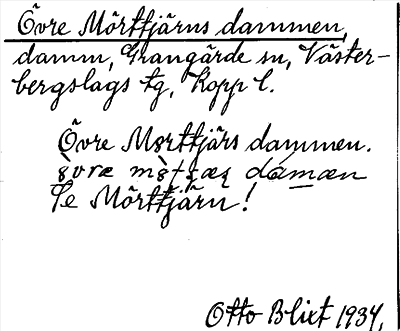 Övre Mörttjärns dammen,
damm, Grangärde sn, Väster-
bergslags tg, Kopp l.
Övre Mørttjärs dammen.
Se Mörttjärn!
Otto Blixt 1934.